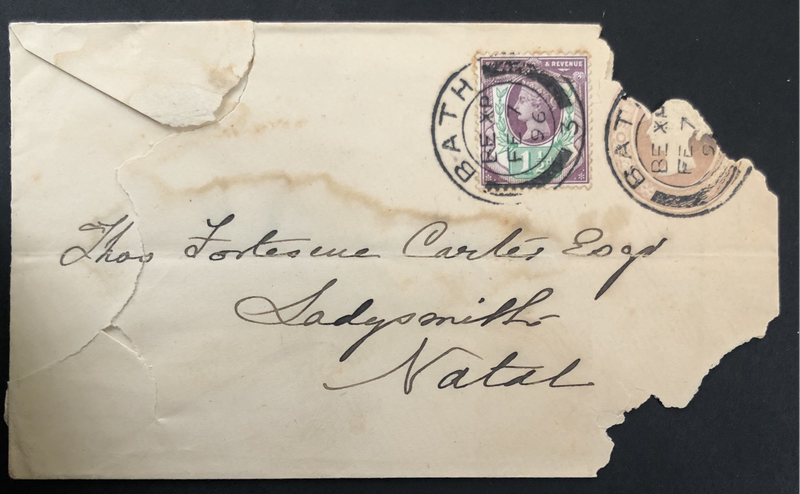 & REVENUE
BATH
BE XP
FE 7
96
3
1½
BAT
BE XP
FE 7
9
Thos Fortescue Carter Esqr
Ladysmith
Natal